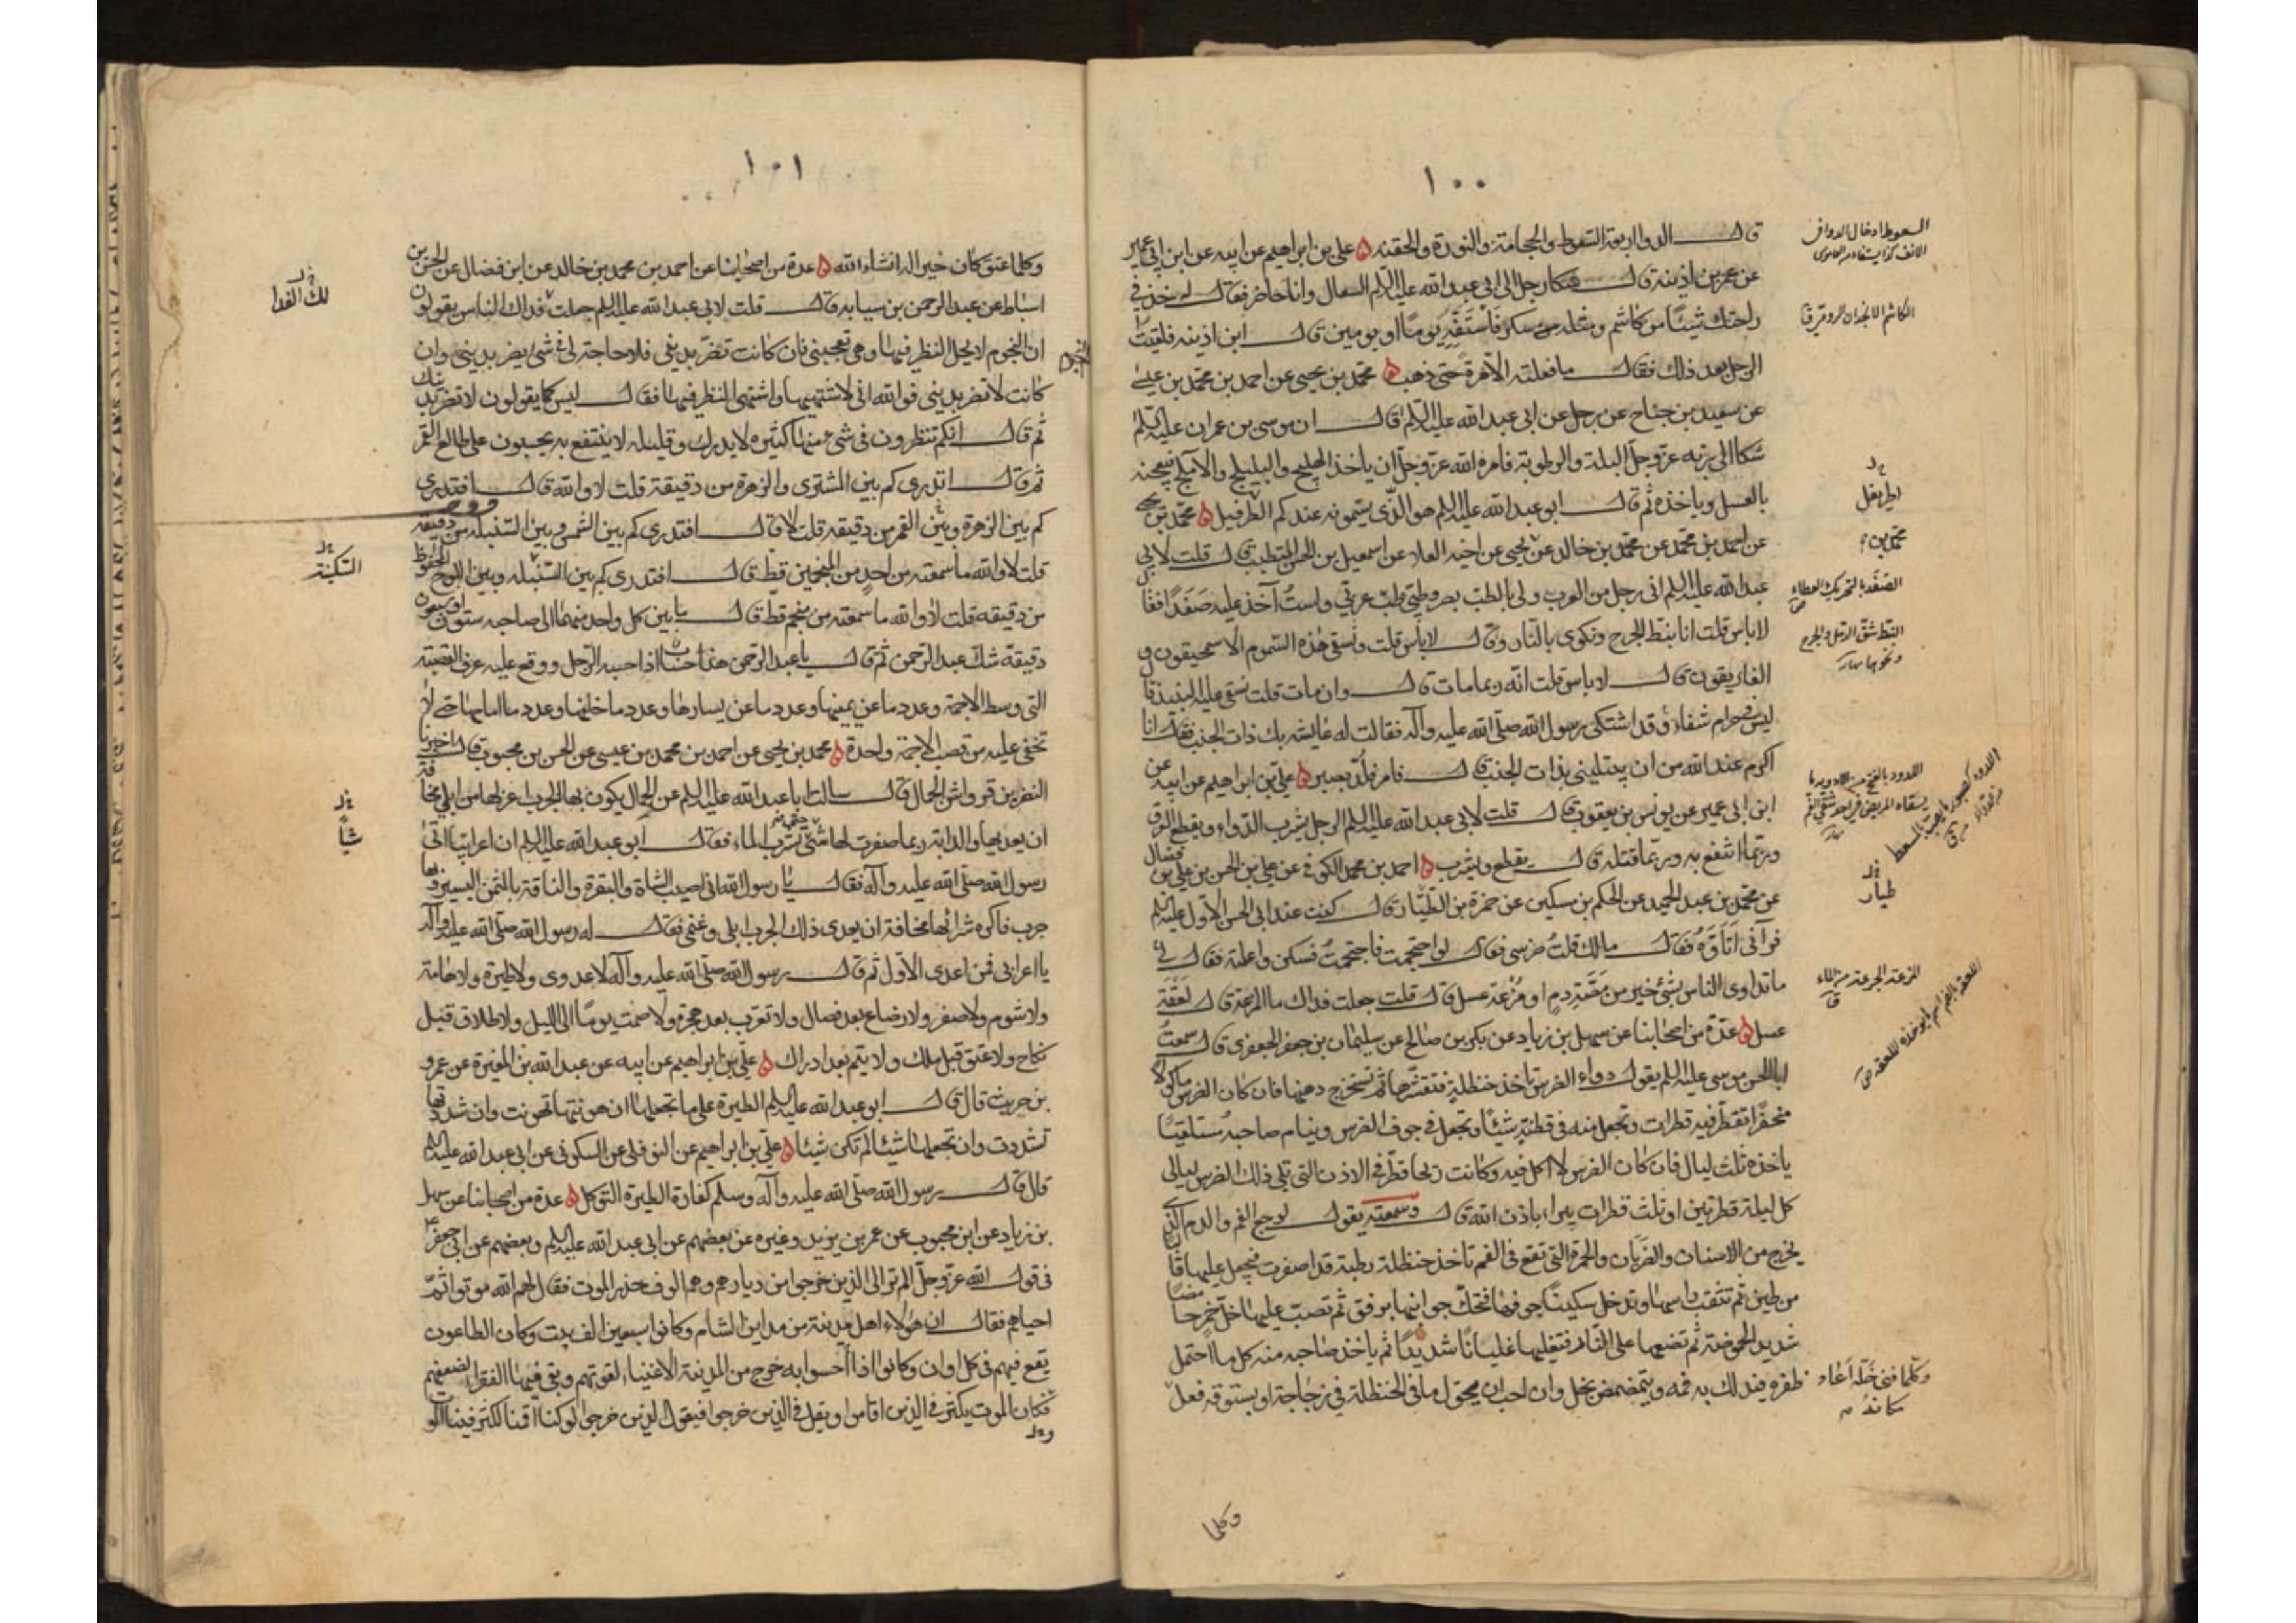 ١٠٠
قال الدواء اربعة السعوط والحجامة والنورة والحقنه ٥ علي بن ابراهيم عن ابيه عن ابن ابي عمير
عن عمر بن اذينة قال شكا رجل الى ابي عبد الله عليه السلم السعال وانا حاضر فقال له خذ في
راحتك شيئا من كاشم ومثله من سكر فاستفه يوما او يومين قال ابن اذينه فلقيت
الرجل بعد ذلك فقال ما فعلته الا مرة حتى ذهب ٥ محمد بن يحيى عن احمد بن محمد بن عيسى
عن سعيد بن جناح عن رجل عن ابي عبد الله عليه السلم قال ان موسى بن عمران عليه السلم
شكا الى ربه عز وجل البلة والرطوبة فامره الله عز وجل ان ياخذ الهليلج والبليلج والاملج فيعجنه
بالعسل وياخذه ثم قال ابو عبد الله عليه السلم هو الذي يسمونه عندكم الطريفل ٥ محمد بن يحيى
عن احمد بن محمد عن محمد بن خالد عن يحيى عن اخيه العلا عن اسمعيل بن الحسن المتطبب قال قلت لابي
عبد الله عليه السلم اني رجل من العرب ولي بالطب بصر وطبي طب عربي ولست آخذ عليه صفدا فقال
لا باس قلت انا نبط الجرح ونكوي بالنار قال لا باس قلت ونسقي هذه السموم الاسمحيقون و
الغاريقون قال لا باس قلت انه ربما مات قال وان مات قلت نسقي عليه النبيذ قال
ليس في حرام شفاء وقد اشتكى رسول الله صلى الله عليه وآله فقالت له عايشه بك ذات الجنب فقال انا
اكرم عند الله من ان يبتليني بذات الجنب قال فامر فلد بصبر ٥ علي بن ابراهيم عن ابيه عن
ابن ابي عمير عن يونس بن يعقوب قال قلت لابي عبد الله عليه السلم الرجل يشرب الدواء ويقطع العرق
وربما انتفع به وربما قتله قال يقطع ويشرب ٥ احمد بن محمد الكوفي عن علي بن الحسن بن علي بن فضال
عن محمد بن عبد الحميد عن الحكم بن مسكين عن حمزة بن الطيار قال كنت عند ابي الحسن الاول عليه السلم
فرآني اتاوه فقال مالك قلت ضرسي فقال لو احتجمت فاحتجمت فسكن واعلمته فقال لي
ما تداوى الناس بشئ خير من مصة دم او مزعة عسل قال قلت جعلت فداك ما المزعة قال لعقة
عسل ٥ عدة من اصحابنا عن سهل بن زياد عن بكر بن صالح عن سليمان بن جعفر الجعفري قال سمعت
ابا الحسن موسى عليه السلم يقول دواء الضرس تاخذ حنظلة فتقشرها ثم تستخرج دهنها فان كان الضرس ماكولا
منحفرا تقطر فيه قطرات وتجعل منه في قطنة شيئا وتجعل في جوف الضرس وينام صاحبه مستلقيا
ياخذه ثلث ليال فان كان الضرس لا اكل فيه وكانت ريحا قطر في الاذن التي تلي ذلك الضرس ليالي
كل ليلة قطرتين او ثلث قطرات يبراء باذن الله قال وسمعته يقول لوجع الفم والدم الذي
يخرج من الاسنان والضربان والحمرة التي تقع في الفم تاخذ حنظلة رطبة قد اصفرت فيجعل عليها قالبا
من طين ثم تثقب راسها وتدخل سكينا جوفها فتحك جوانبها برفق ثم تصب عليها خل خمر حامضا
شديد الحموضة ثم تضعها على النار فتغليها غليانا شديدا ثم ياخذ صاحبه منه كل ما احتمل
ظفره فيدلك به فمه ويتمضمض بخل وان احب ان يحول ما في الحنظلة في زجاجة او بستوقه فعل
وكلما
السعوط ادخال الدواء في
الانف
الكاشم الانجدان الرومي ق
اطريفل
محمد بن
الصفد بالتحريك العطاء
البط شق الدمل والجرح
ونحوهما
اللدود بالفتح من الادويه ما
يسقاه المريض في احد شقي الفم
طيار
المزعة الجرعة من الماء
ق
وكلما فنى خله اعاد
مكانه
١٠١
وكلما عتق كان خيرا له انشاء الله ٥ عدة من اصحابنا عن احمد بن محمد بن خالد عن ابن فضال عن الحسن بن
اسباط عن عبد الرحمن بن سيابه قال قلت لابي عبد الله عليه السلم جعلت فداك الناس يقولون
ان النجوم لا يحل النظر فيها وهي تعجبني فان كانت تضر بديني فلا حاجة لي في شئ يضر بديني وان
كانت لا تضر بديني فوالله اني لاشتهيها واشتهي النظر فيها فقال ليس كما يقولون لا تضر بدينك
ثم قال انكم تنظرون في شئ منها كثيره لا يدرك وقليله لا ينتفع به يحسبون على طالع القمر
ثم قال اتدري كم بين المشتري والزهرة من دقيقة قلت لا والله قال افتدري
كم بين الزهرة وبين القمر من دقيقه قلت لا قال افتدري كم بين الشمس وبين السنبله من دقيقه
قلت لا والله ما سمعته من احد من المنجمين قط قال افتدري كم بين السنبله وبين اللوح المحفوظ
من دقيقه قلت لا والله ما سمعته من منجم قط قال ما بين كل واحد منهما الى صاحبه ستون او سبعون
دقيقة شك عبد الرحمن ثم قال يا عبد الرحمن هذا حساب اذا حسبه الرجل ووقع عليه عرف القصبة
التي وسط الاجمة وعدد ما عن يمينها وعدد ما عن يسارها وعدد ما خلفها وعدد ما امامها حتى لا
تخفى عليه من قصب الاجمة واحدة ٥ محمد بن يحيى عن احمد بن محمد بن عيسى عن الحسن بن محبوب قال اخبرنا
النضر بن قرواش الجمال قال سالت ابا عبد الله عليه السلم عن الجمال يكون بها الجرب اعزلها من ابلي مخافة
ان يعديها والدابة ربما صفرت لها حتى تشرب الماء فقال ابو عبد الله عليه السلم ان اعرابيا اتى
رسول الله صلى الله عليه وآله فقال يا رسول الله اني اصيب الشاة والبقرة والناقة بالثمن اليسير وبها
جرب فاكره شرائها مخافة ان يعدى ذلك الجرب ابلي وغنمي فقال له رسول الله صلى الله عليه وآله
يا اعرابي فمن اعدى الاول ثم قال رسول الله صلى الله عليه وآله لا عدوى ولا طيرة ولا هامة
ولا شوم ولا صفر ولا رضاع بعد فصال ولا تعرب بعد هجرة ولا صمت يوما الى الليل ولا طلاق قبل
نكاح ولا عتق قبل ملك ولا يتم بعد ادراك ٥ علي بن ابراهيم عن ابيه عن عبد الله بن المغيرة عن عمرو
بن حريث قال قال ابو عبد الله عليه السلم الطيرة على ما تجعلها ان هونتها تهونت وان شددتها
تشددت وان تجعلها شيئا لم تكن شيئا ٥ علي بن ابراهيم عن النوفلي عن السكوني عن ابي عبد الله عليه السلم
قال قال رسول الله صلى الله عليه وآله وسلم كفارة الطيرة التوكل ٥ عدة من اصحابنا عن سهل
بن زياد عن ابن محبوب عن عمر بن يزيد وغيره عن بعضهم عن ابي عبد الله عليه السلم وبعضهم عن ابي جعفر ع
في قول الله عز وجل الم تر الى الذين خرجوا من ديارهم وهم الوف حذر الموت فقال لهم الله موتوا ثم
احياهم فقال ان هؤلاء اهل مدينة من مداين الشام وكانوا سبعين الف بيت وكان الطاعون
يقع فيهم في كل اوان وكانوا اذا احسوا به خرج من المدينة الاغنياء لقوتهم وبقى فيها الفقراء لضعفهم
فكان الموت يكثر في الذين اقاموا ويقل في الذين خرجوا فيقول الذين خرجوا لو كنا اقمنا لكثر فينا الموت
لك الفدا
النجوم
السكينة
شيأ